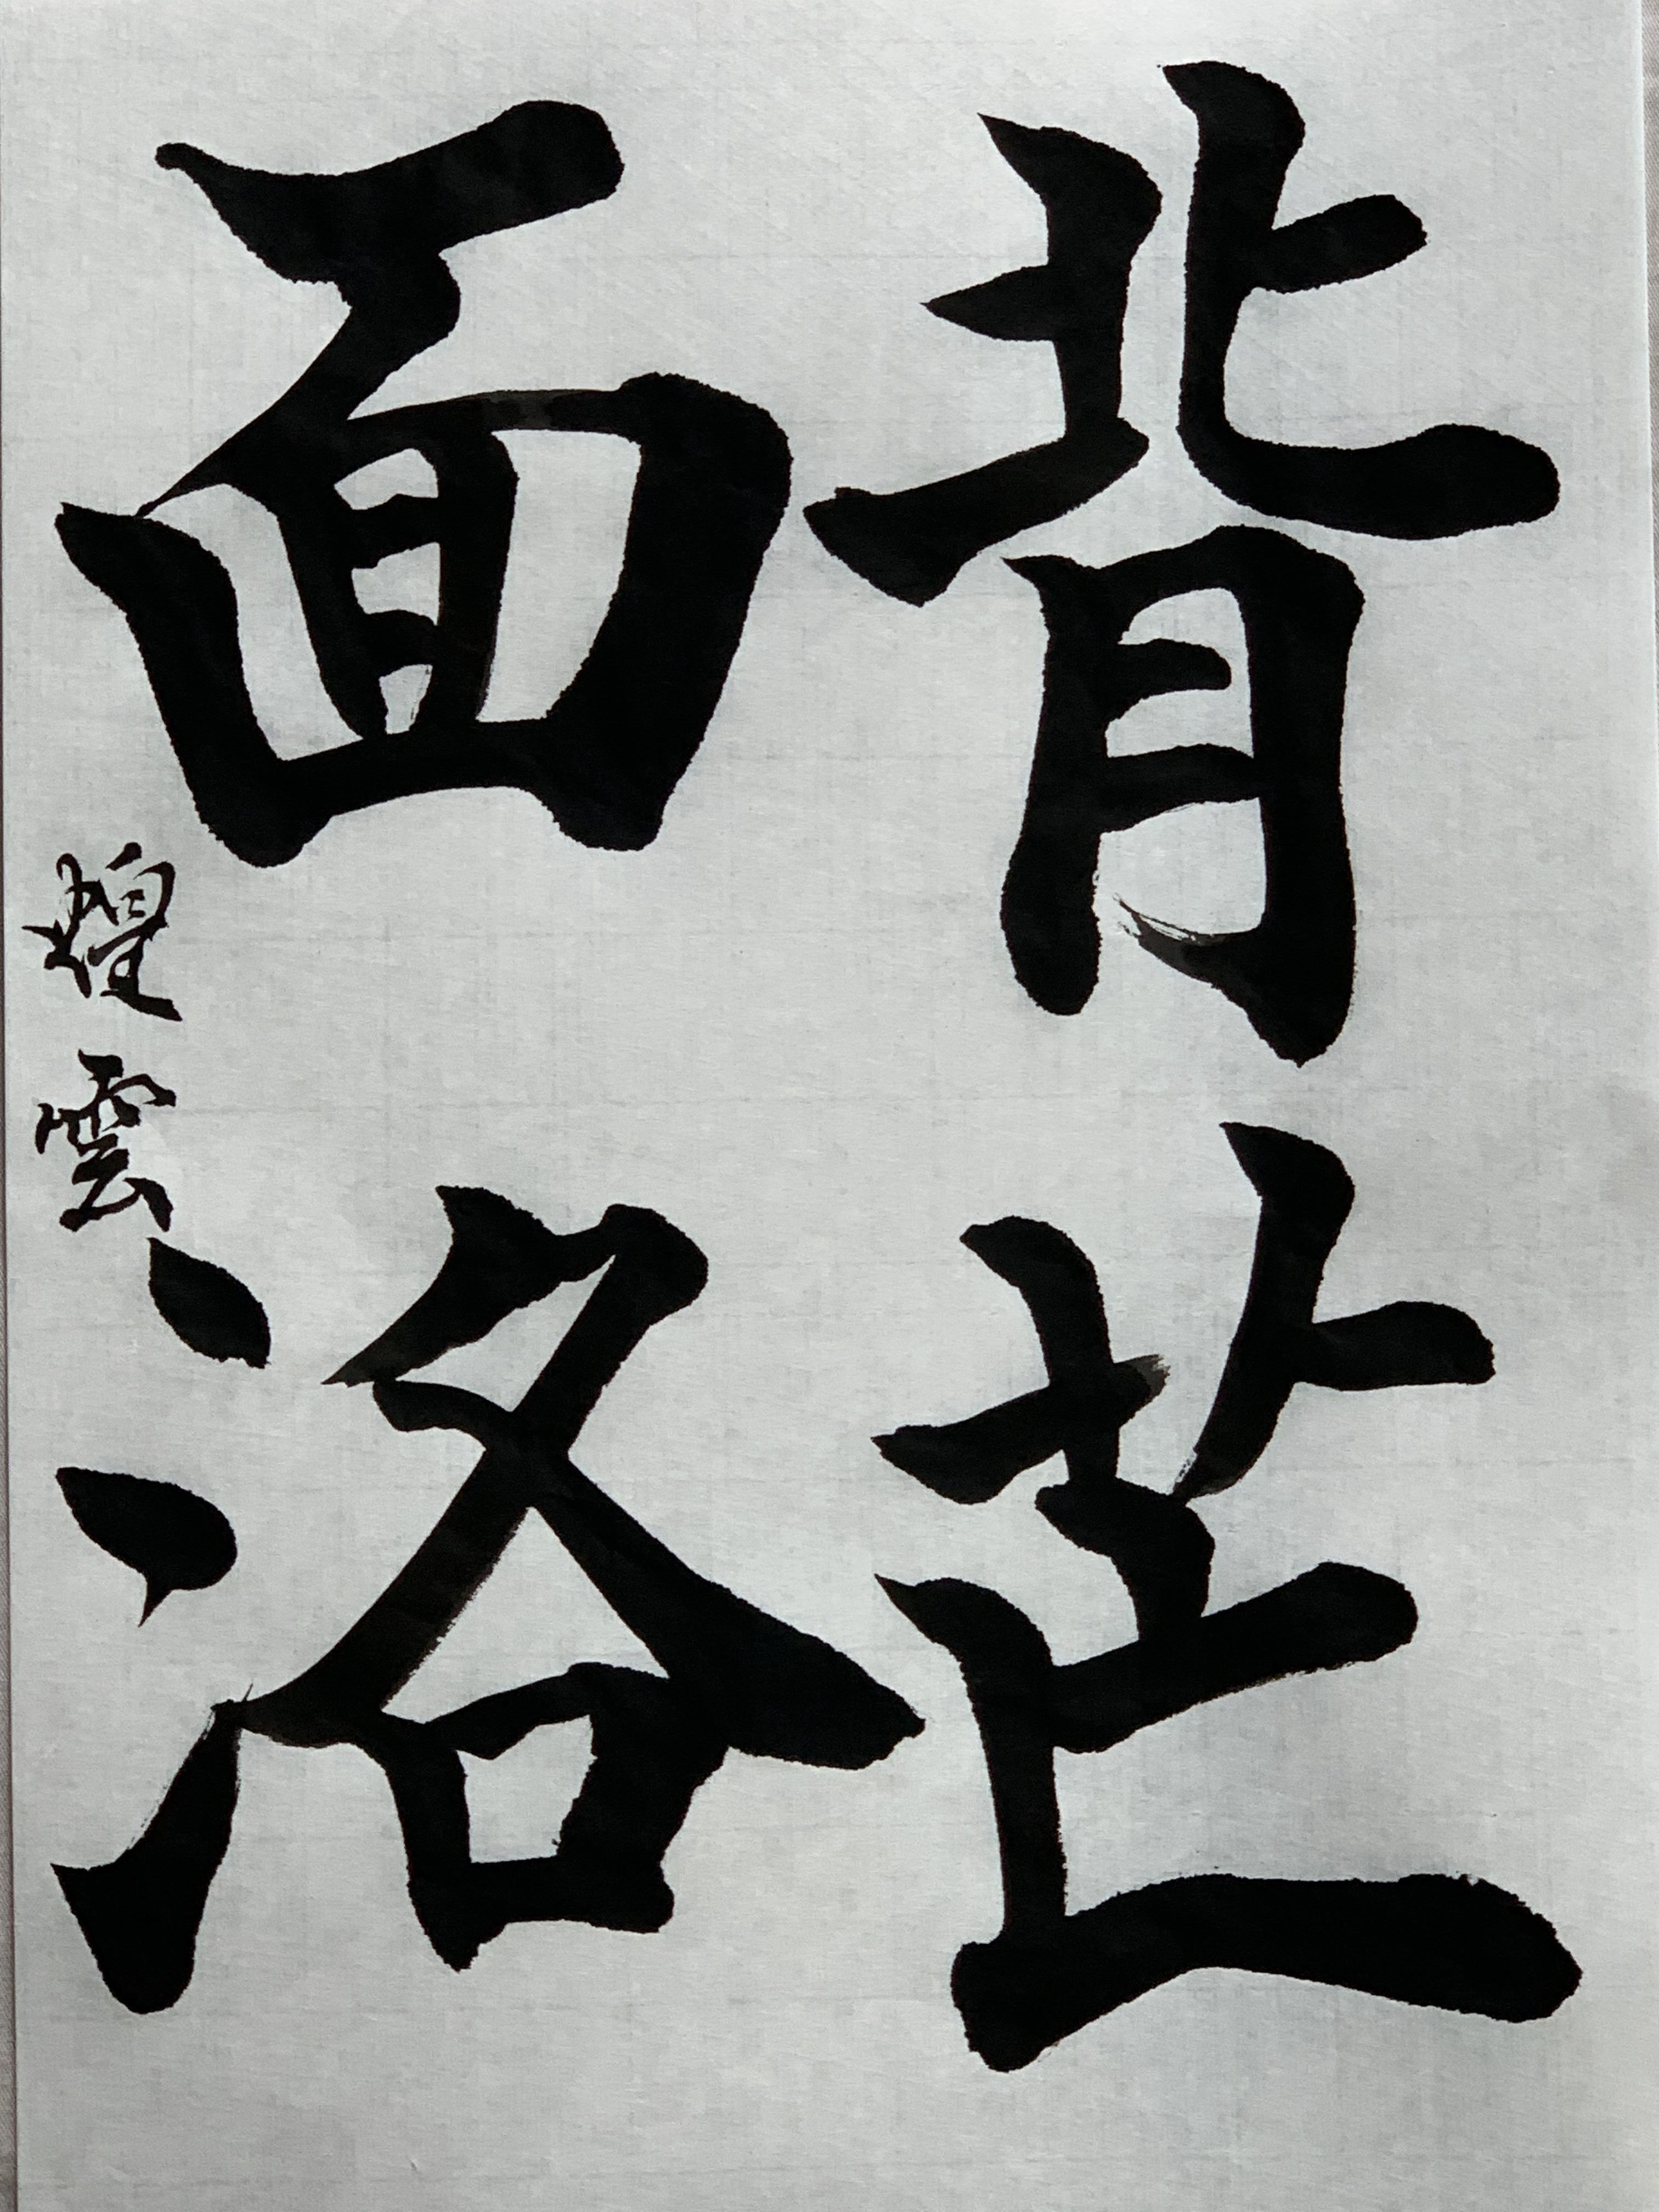 背芒
面洛
煌雲